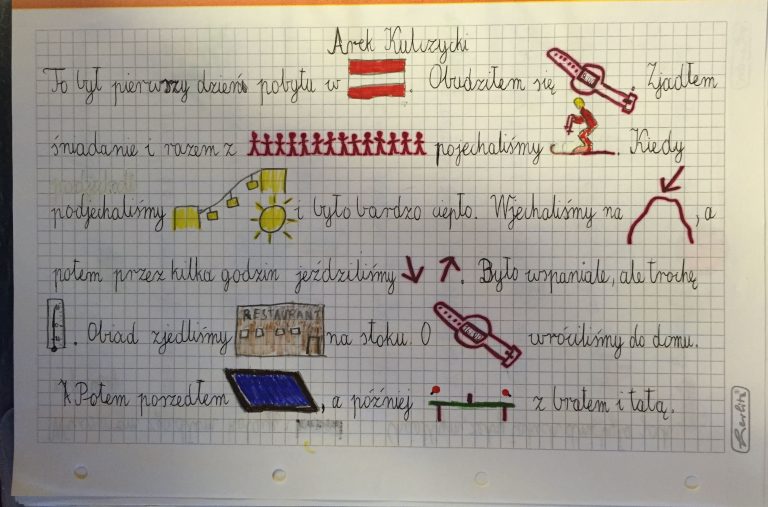 Arek Kulczycki
To był pierwszy dzień pobytu w . Obudziłem się Zjadłem
śniadanie i razem z pojechaliśmy . Kiedy
podjechaliśmy i było bardzo ciepło. Wjechaliśmy na , a
potem przez kilka godzin jeździliśmy . Było wspaniale, ale trochę
. Obiad zjedliśmy RESTAURANT na stoku. O wróciliśmy do domu.
Potem poszedłem , a później z bratem i tatą.
Herlitz